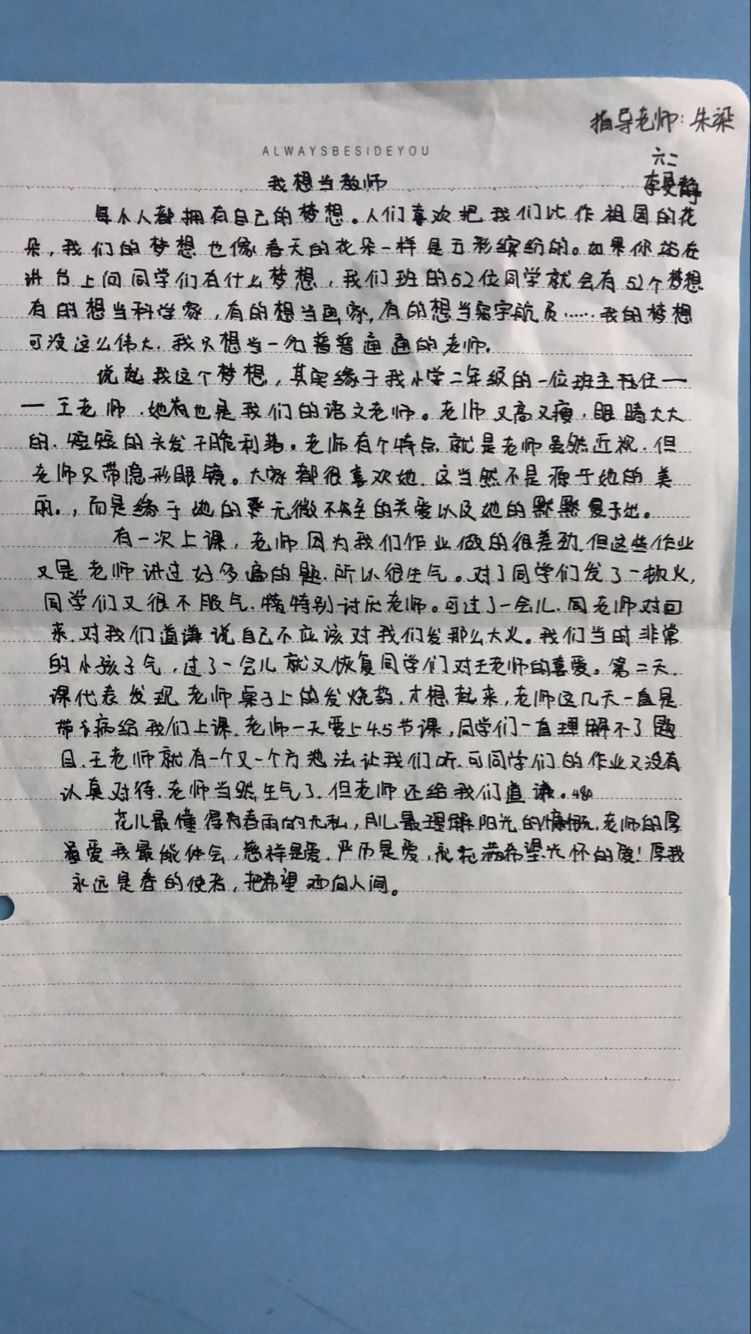 指导老师：朱梁
ALWAYSBESIDEYOU
六二
我想当教师
李曼静
每个人都拥有自己的梦想。人们喜欢把我们比作祖国的花
朵，我们的梦想也像春天的花朵一样是五彩缤纷的。如果你站在
讲台上问同学们有什么梦想，我们班的52位同学就会有52个梦想
有的想当科学家，有的想当画家，有的想当宇航员……我的梦想
可没这么伟大，我只想当一名普普通通的老师。
说起我这个梦想，其实缘于我小学二年级的一位班主任一
一王老师，她也是我们的语文老师。老师又高又瘦，眼睛大大
的，短短的头发干脆利落。老师有个特点，就是老师虽然近视，但
老师只带隐形眼镜。大家都很喜欢她，这当然不是源于她的美
丽。，而是缘于她的无微不至的关爱以及她的默默付出。
有一次上课，老师因为我们作业做的很差劲，但这些作业
又是老师讲过好多遍的题，所以很生气。对了同学们发了一顿火，
同学们又很不服气，特别讨厌老师。可过了一会儿，老师对回
来，对我们道谦说自己不应该对我们发那么大火。我们当时非常
的小孩子气，过了一会儿就又恢复同学们对王老师的喜爱。第二天，
课代表发现老师桌子上的发烧药，才想起来，老师这几天一直是
带病给我们上课，老师一天要上45节课，同学们一直理解不了题
目，王老师就有一个又一个方法让我们听，可同学们的作业又没有
认真对待，老师当然生气了，但老师还给我们道谦。
花儿最懂得春雨的无私，月儿最理解阳光的慷慨，老师的厚
爱我最能体会，慈祥是爱，严历是爱，希望 怀的爱！
永远是春的使者，把希望洒向人间。